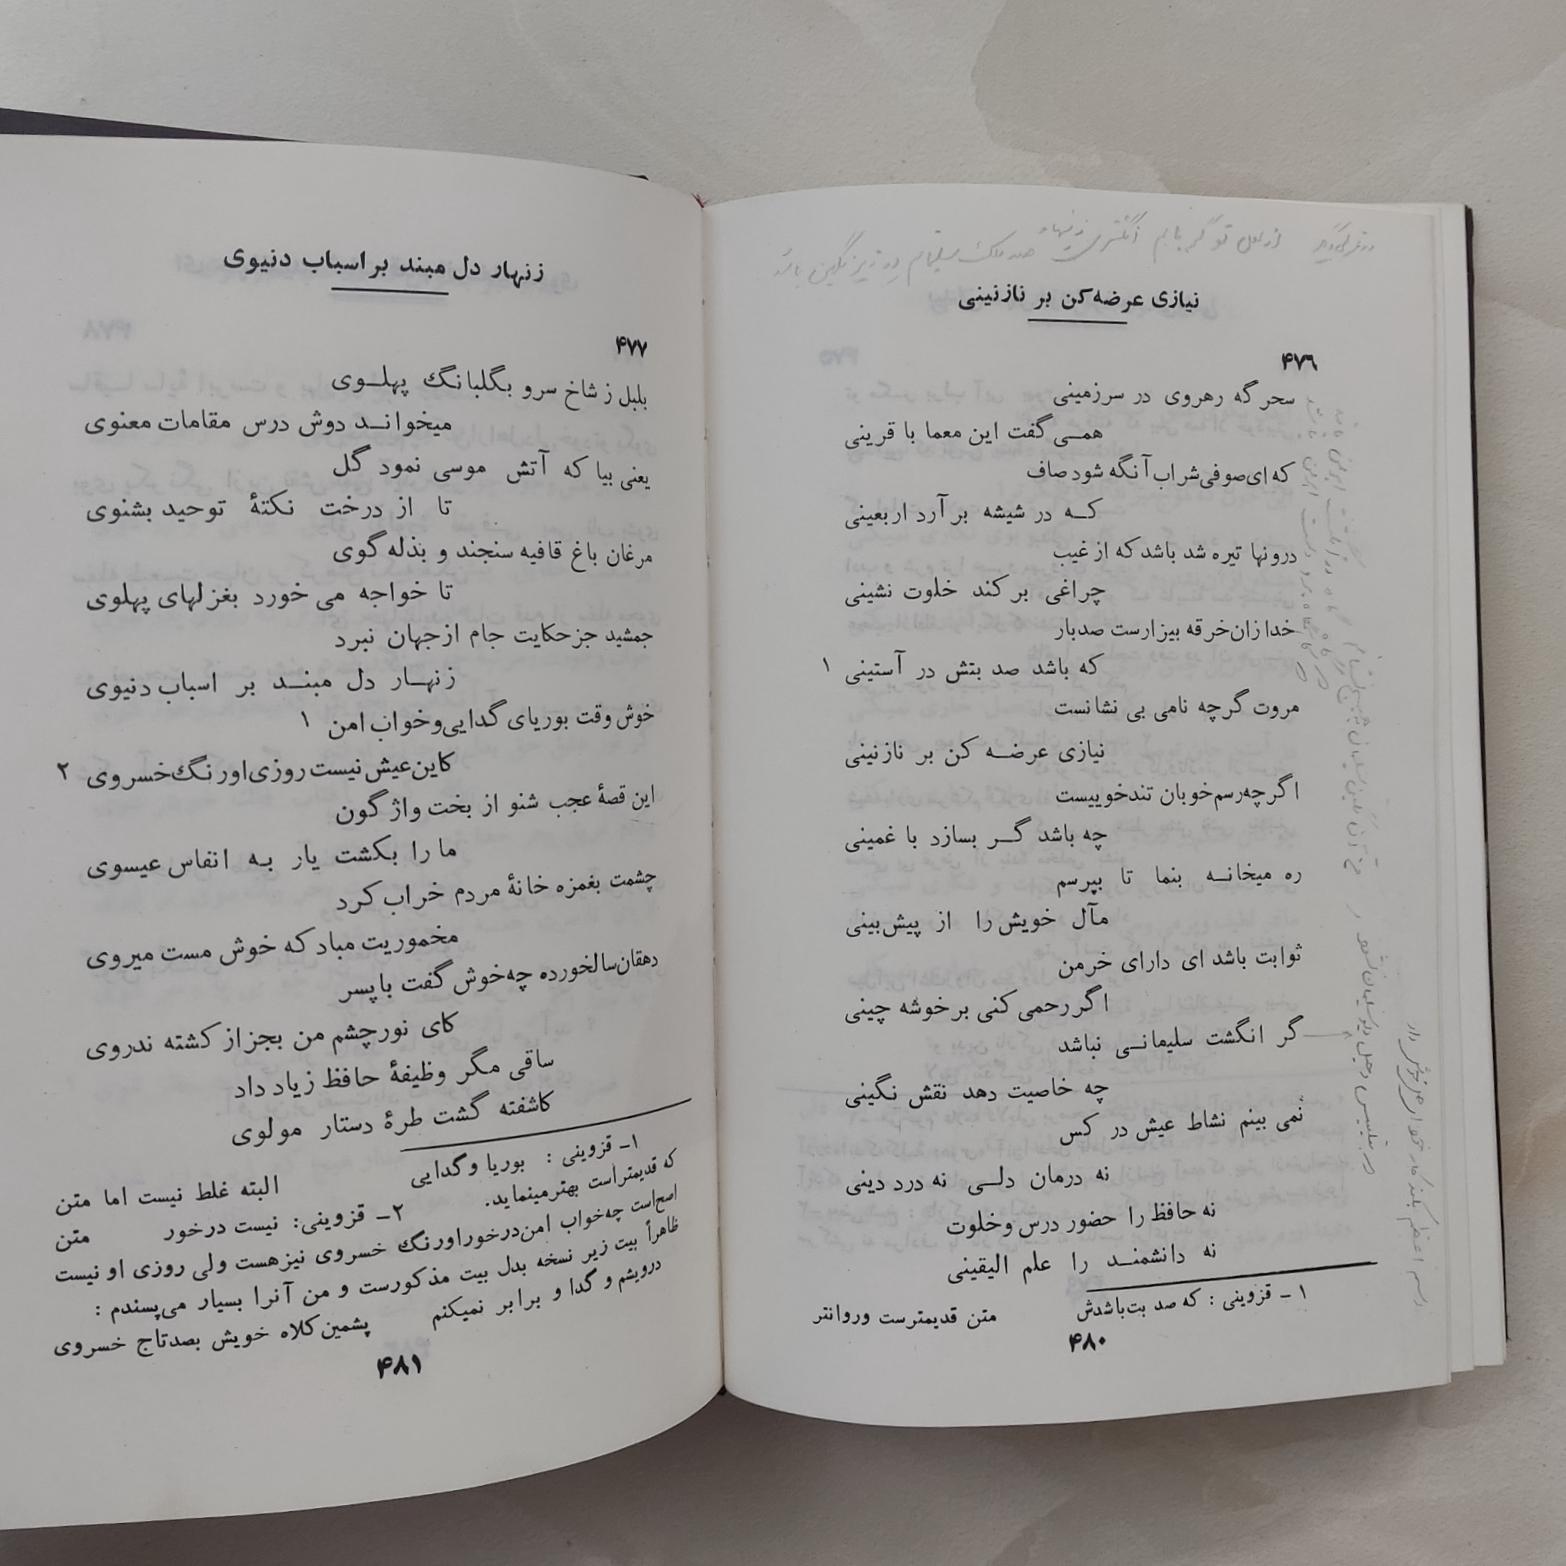 در غزلی گوید از لعل تو گر یابم انگشتری زنهار
صد ملک سلیمانم در زیر نگین باشد
نیازی عرضه کن بر نازنینی
۴۷۶
سحر گه رهروی در سرزمینی
همــی گفت این معما با قرینی
که ای صوفی شراب آنگه شود صاف
کــه در شیشه بر آرد اربعینی
درونها تیره شد باشد که از غیب
چراغی بر کند خلوت نشینی
خدا زان خرقه بیزارست صدبار
که باشد صد بتش در آستینی ۱
مروت گرچه نامی بی نشانست
نیازی عرضــه کن بر نازنینی
اگرچه رسم خوبان تندخوییست
چه باشد گــر بسازد با غمینی
ره میخانــه بنما تا بپرسم
مآل خویش را از پیش بینی
ثوابت باشد ای دارای خرمن
اگر رحمی کنی بر خوشه چینی
گر انگشت سلیمانــی نباشد
چه خاصیت دهد نقش نگینی
نمی بینم نشاط عیش در کس
نه درمان دلــی نه درد دینی
نه حافظ را حضور درس وخلوت
نه دانشمنــد را علم الیقینی
۱ – قزوینی : که صد بت‌باشدش متن قدیمترست وروانتر
۴۸۰
زنهار دل مبند بر اسباب دنیوی
۴۷۷
بلبل ز شاخ سرو بگلبانگ پهلــوی
میخوانــد دوش درس مقامات معنوی
یعنی بیا که آتش موسی نمود گل
تا از درخت نکتهٔ توحید بشنوی
مرغان باغ قافیه سنجند و بذله گوی
تا خواجه می خورد بغزلهای پهلوی
جمشید جز حکایت جام ازجهان نبرد
زنهــار دل مبنــد بر اسباب دنیوی
خوش وقت بوریای گدایی‌وخواب امن ۱
کاین عیش نیست روزی اورنگ خسروی ۲
این قصهٔ عجب شنو از بخت واژگون
ما را بکشت یار بــه انفاس عیسوی
چشمت بغمزه خانهٔ مردم خراب کرد
مخموریت مباد که خوش مست میروی
دهقان سالخورده چه خوش گفت باپسر
کای نورچشم من بجز از کشته ندروی
ساقی مگر وظیفهٔ حافظ زیاد داد
کاشفته گشت طرهٔ دستار مولوی
۱– قزوینی : بوریا و گدایی البته غلط نیست اما متن
که قدیمتراست بهترمینماید. ۲– قزوینی: نیست درخور متن
اصح‌است چه‌خواب امن‌درخوراورنگ خسروی نیزهست ولی روزی او نیست
ظاهراً بیت زیر نسخه بدل بیت مذکورست و من آنرا بسیار می‌پسندم :
درویشم و گدا و برابر نمیکنم پشمین‌کلاه خویش بصدتاج خسروی
۴۸۱